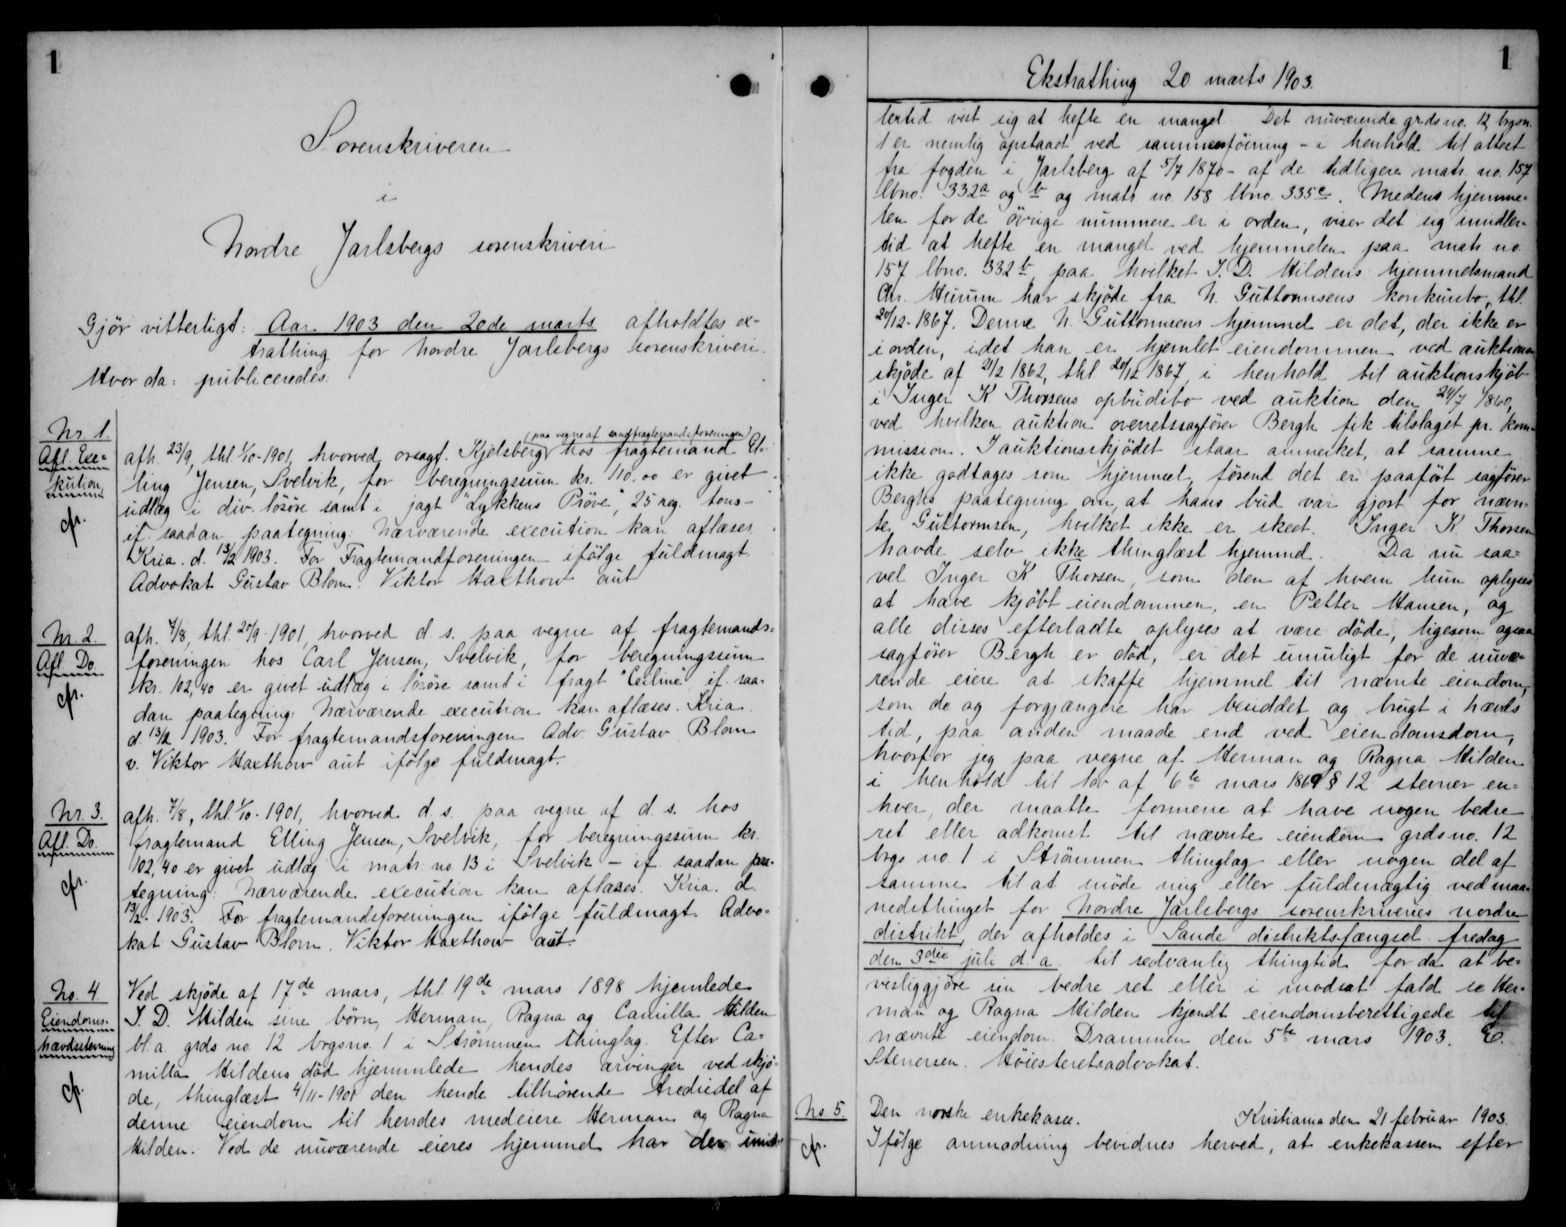 1
Sorenskriveren
i
Nordre Jarlsbergs sorenskriveri
Gjör vitterligt: Aar 1903 den 20de marts afholdtes ex-
trathing for Nordre Jarlsbergs sorenskriveri.
Hvor da: publiceredes:
Nr. 1.
Afl. Exe-
kution
cfr.
(paa vegne af sandfragtemandsforeningen)
afh. 23/9, thl 1/10-1901, hvorved orsagf. Kjelsberg hos fragtemand El-
ling Jensen, Svelvik, for beregningssum kr. 110.00 er givet
udlæg i div. lösöre samt i jagt "Lykkens Pröve", 25 reg. tons -
if. saadan paategning: Nærværende execution kan aflæses
Kria. d. 13/2 1903. For Fragtemandforeningen ifölge fuldmagt
Advokat Gustav Blom. Viktor Haxthow aut
Nr. 2.
Afl. Do.
cfr.
afh. 7/8, thl. 20/9-1901, hvorved d s. paa vegne af fragtemands-
foreningen hos Carl Jensen, Svelvik, for beregningssum
kr. 102,40 er givet udlæg i lösöre samt i fragt if. saa-
dan paategning: Nærværende execution kan aflæses. Kria.
d. 13/2 1903. For fragtemandsforeningen Adv. Gustav Blom
v. Viktor Haxthow aut ifölge fuldmagt.
Nr. 3.
Afl. Do.
cfr.
afh. 7/8, thl. 1/10-1901, hvorved d s. paa vegne af d. s. hos
fragtemand Elling Jensen, Svelvik, for beregningssum kr.
102,40 er givet udlæg i matr. no 13 i Svelvik - if. saadan paa-
tegning: Nærværende execution kan aflæses. Kria. d.
13/2-1903. For fragtemandsforeningen ifölge fuldmagt Advo-
kat Gustav Blom. Viktor Haxthow aut.
No. 4
Eiendoms-
hævdsstevning
cfr.
Ved skjöde af 17de mars, thl. 19de mars 1898 hjemlede
I. D. Hilden sine börn, Herman, Ragna og Camilla Hilden
bl. a. grds no. 12 brgsno. 1 i Strömmen thinglag. Efter Ca-
milla Hildens död hjemmlede hendes arvinger ved skjö-
de, thinglæst 4/11-1901 den hende tilhörende trediedel af
denne eiendom til hendes medeiere Herman og Ragna
Hilden. Ved de nuværende eieres hjemmel har der imid-
1
Ekstrathing 20 marts 1903.
lertid vist sig at hefte en mangel. Det nuværende grdsno. 12 brgsn.
1 er nemlig opstaaet ved sammenföining - i henhold til attest
fra fogden i Jarlsberg af 5/7 1870 - af de tidligere matr. no. 157
lbno. 332a og b og matr no. 158 lbno. 335c. Medens hjemme-
len for de övrige nummere er i orden, viser det sig imidler-
tid at hefte en mangel ved hjemmelen paa matr. no.
157 lbno. 332b, paa hvilket I. D. Hildens hjemmelsmand
Chr. Hurum har skjöde fra N. Guttormsens konkursbo, thl.
20/12-1867. Denne N. Guttormsens hjemmel er det, der ikke er
i orden, idet han er hjemlet eiendommen ved auktions-
skjöde af 21/2 1862, thl 20/12 1867, i henhold til auktionskjöb
i Inger K Thorsens opbudsbo ved auktion den 24/7 1860,
ved hvilken auktion overretssagförer Bergh fik tilslaget pr. kom-
mission. I auktionsskjödet staar anmerket, at samme
ikke godtages som hjemmel, förend det er paaført sagförer
Berghs paategning om, at hans bud var gjort for nævn-
te Guttormsen, hvilket ikke er skeet. Inger K Thorsen
havde selv ikke thinglæst hjemmel. Da nu saa-
vel Inger K Thorsen, som den af hvem hun oplyses
at have kjöbt eiendommen, en Petter Hansen, og
alle disses efterladte oplyses at være döde, ligesom ogsaa
sagförer Bergh er död, er det umuligt for de nuvæ-
rende eiere at skaffe hjemmel til nævnte eiendom,
som de og forgjængere har besiddet og brugt i hævds
tid, paa anden maade end ved eiendomsdom,
hvorfor jeg paa vegne af Herman og Ragna Hilden
i henhold til lov af 6te mars 1869 § 12 stevner en-
hver, der maatte formene at have nogen bedre
ret eller adkomst til nævnte eiendom grdsno. 12
brgs no. 1 i Strömmen thinglag eller nogen del af
samme til at möde mig eller fuldmægtig ved maa-
nedsthinget for Nordre Jarlsbergs sorenskriveries nordre
distrikt, der afholdes i Sande distriktsfængsel fredag
den 3die juli d. a. til sedvanlig thingtid for da at be-
visliggjöre sin bedre ret eller i modsat fald se Her-
man og Ragna Hilden kjendt eiendomsberettigede til
nævnte eiendom. Drammen den 5te mars 1903. E.
Stenersen. Höiesteretsadvokat.
No. 5.
cfr.
Den norske enkekasse. Kristiania den 21 februar 1903.
Ifölge anmodning bevidnes herved, at enkekassen efter